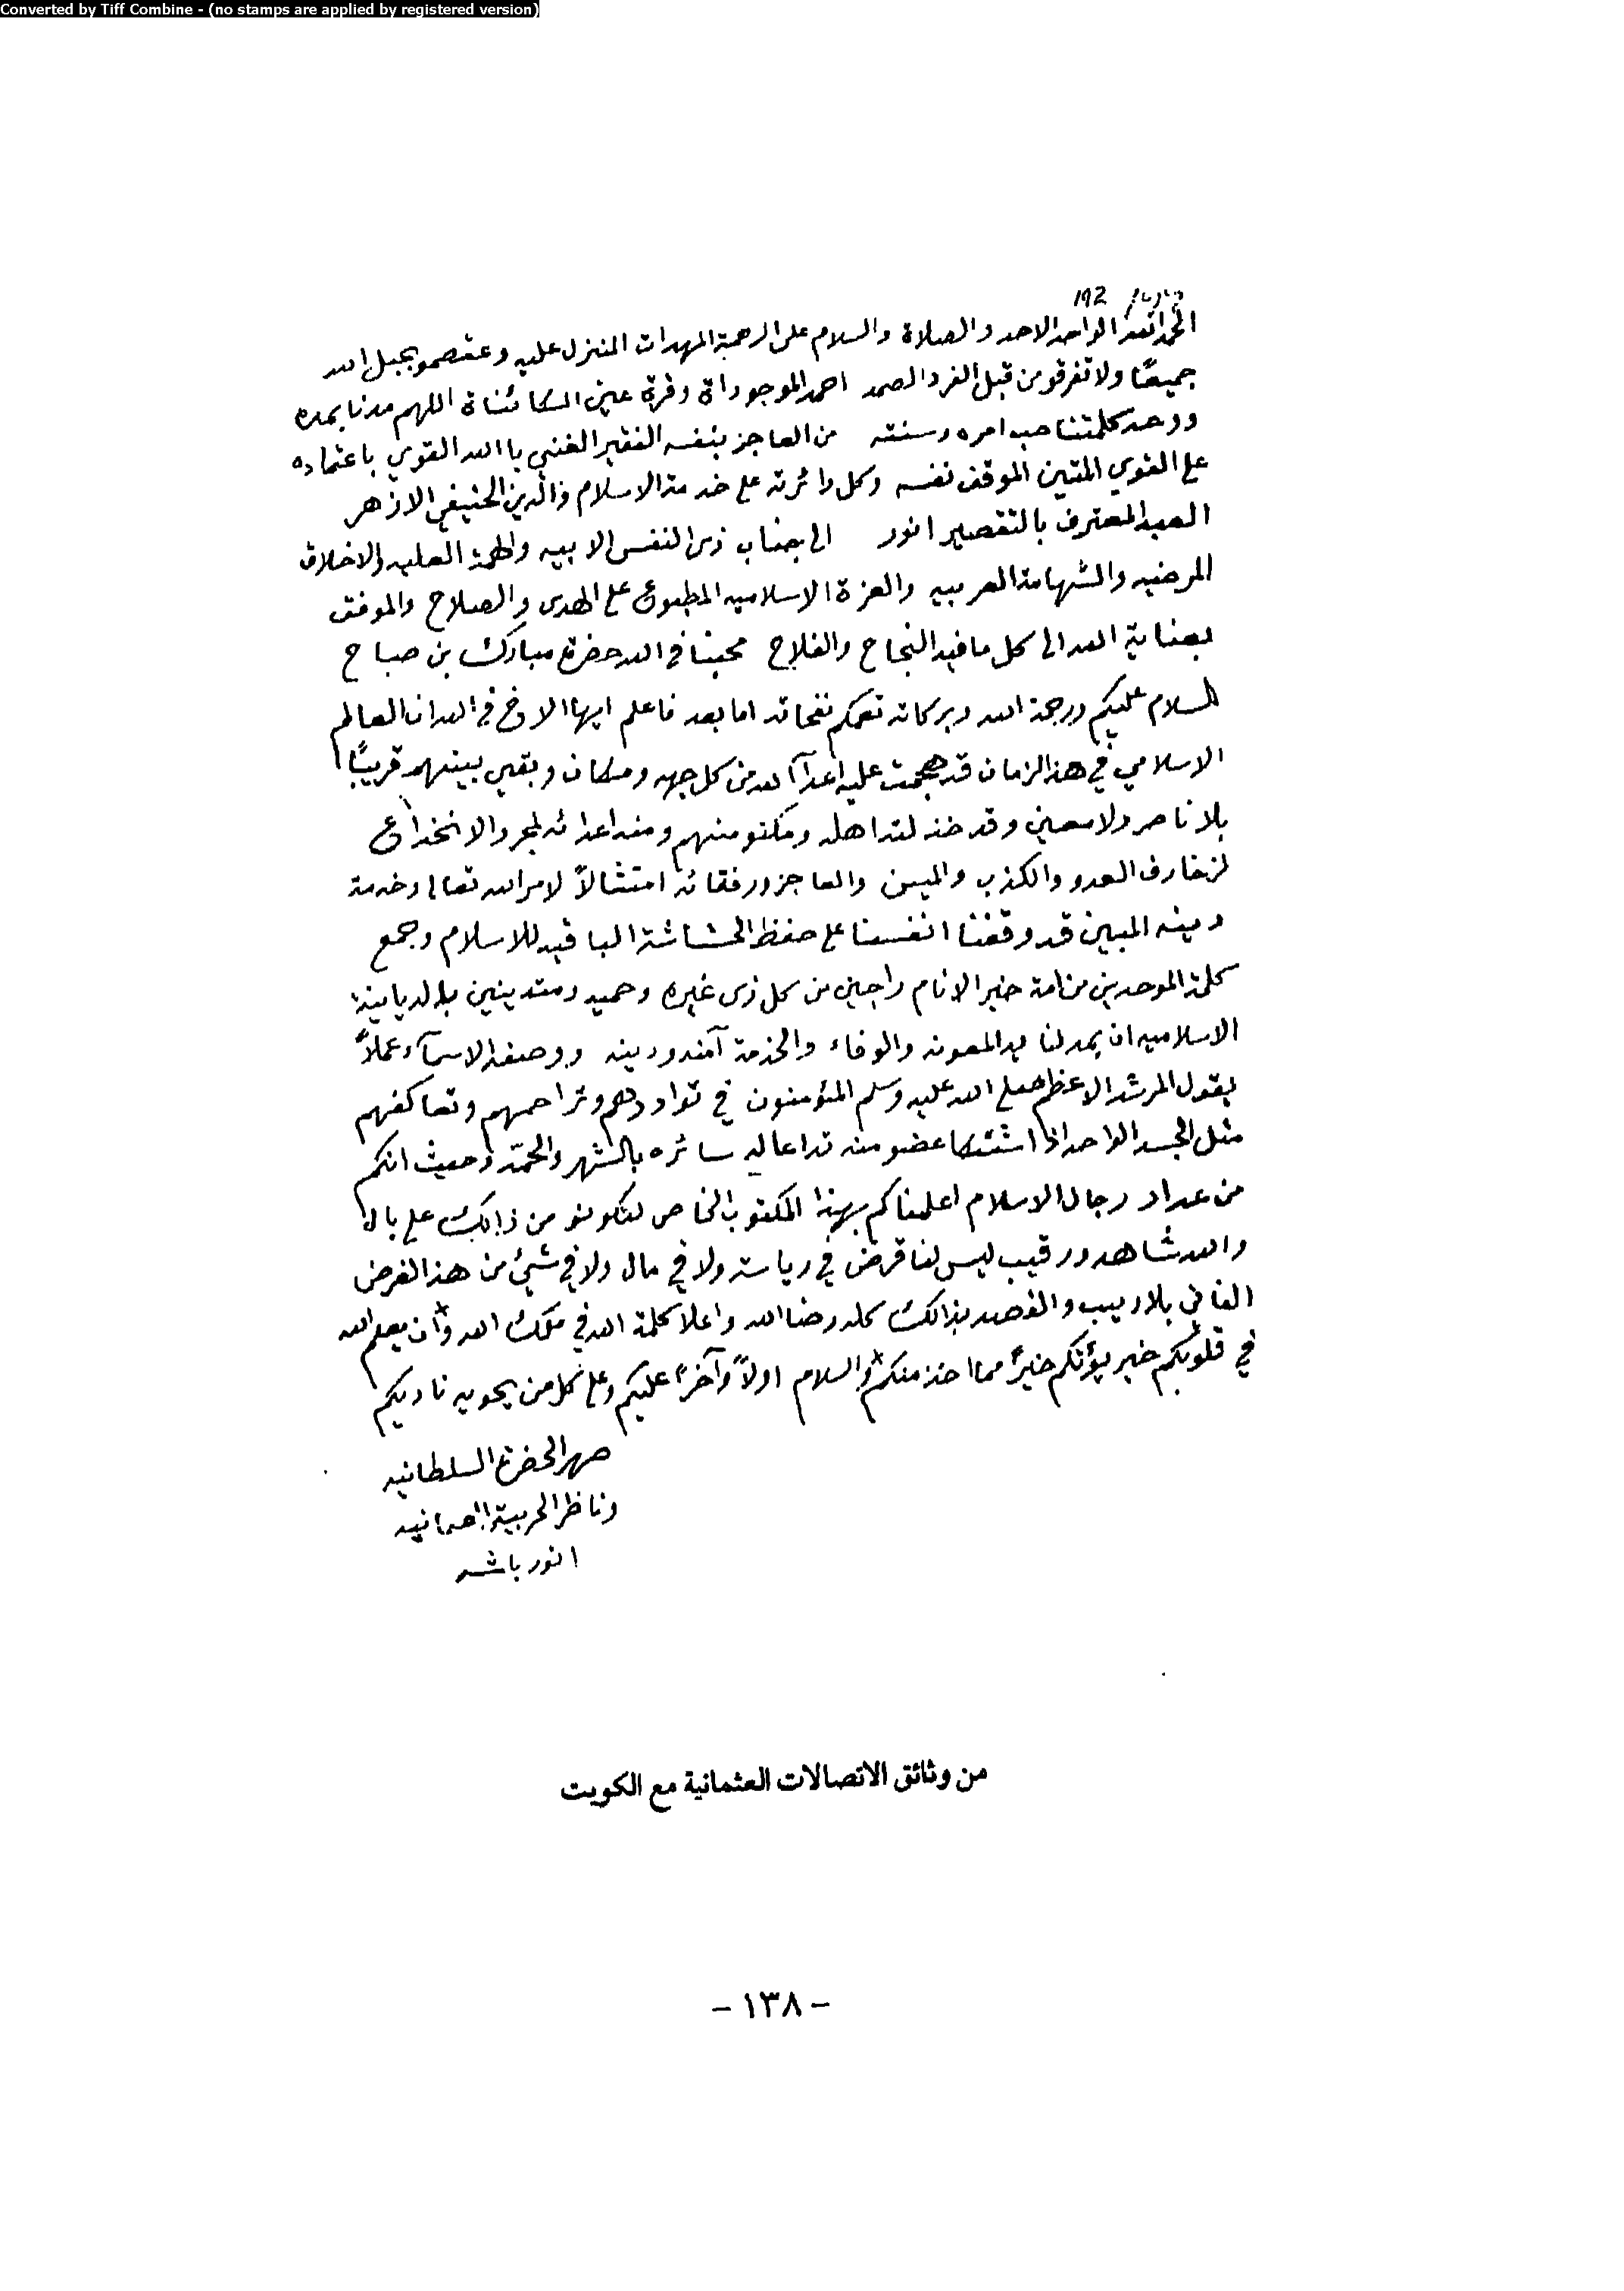 Converted by Tiff Combine - (no stamps are applied by registered version)
192
الحمد لله الواحد الاحد والصلاة والسلام على الرحمة المهدات المنزل عليه وعتصموبحبل الله
جميعًا ولا تفرقو من قبل الفرد الصمد احمد الموجوداة وقرة عين الكائناة اللهم مدنا بمدده
ووحد كلمتنا حب امره وسنته من العاجز بنفسه الفقير الغني باالله القوي باعتماده
على القوي المتين الموقف نفسه وكل دائرته على خدمة الاسلام والدين الحنيفي الازهر
العبد المعترف بالتقصير انور الى جناب ذى النفس الابيه والهمة العليه والاخلاق
المرضيه والشهامة العربيه والعزة الاسلاميه المطبوع على الهدى والصلاح والموفق
بعناية الله الى كل ما فيه النجاح والفلاح محبنا في الله حضرة مبارك بن صباح
السلام عليكم ورحمة الله وبركاته تعمكم نفحاته اما بعد فاعلم ايها الاخ في الله ان العالم
الاسلامي في هذ الزمان قد هجمت عليه اعدآ الله من كل جهه ومكان وبقي بينهم قريبًا
بلا ناصر ولا معين وقد خذلته اهله ومكنو منهم ومنه اعدائه لمجرد الانخداع
لزخارف العدو والكذب والمين والعاجز ورفقائه امتثالاً لامر الله تعالى وخدمة
دينه المبين قد وقفنا انفسنا على حفظ الحشاشة الباقيه للاسلام وجمع
كلمة الموحدين من امة خير الانام راجين من كل ذى غيره وحميه ومتدينين بالديانة
الاسلاميه ان يمد لنا يد المعونه والوفاء والخدمة آمته ودينه ووصفة الاسمآء عملاً
بقول المرشد الاعظم صلى الله عليه وسلم المئومنون في تواددهم وتراحمهم وتعاكفهم
مثل الجسد الواحد اذا اشتكا عضو منه تداعا له سائره بالشهر والحمّه وحيث انكم
من عداد رجال الاسلام اعلمناكم بهذا المكتوب الخاص لتكونو من ذالك على بال
والله شاهد ورقيب ليس لنا قرض في رياسة ولا في مال ولا في شئ من هذ الغرض
الفاني بلا ريب والقصد بذالك كله رضا الله واعلا كلمة الله في ملك الله وأن يعلم الله
في قلوبكم خير يؤتكم خيرً مما اخذ منكم والسلام اولاً وآخرً عليكم وعلى كل من يحويه ناديكم
صهر الحضرة السلطانيه
وناظر الحربية
انور باشه
من وثائق الاتصالات العثمانية مع الكويت
- ١٣٨ -